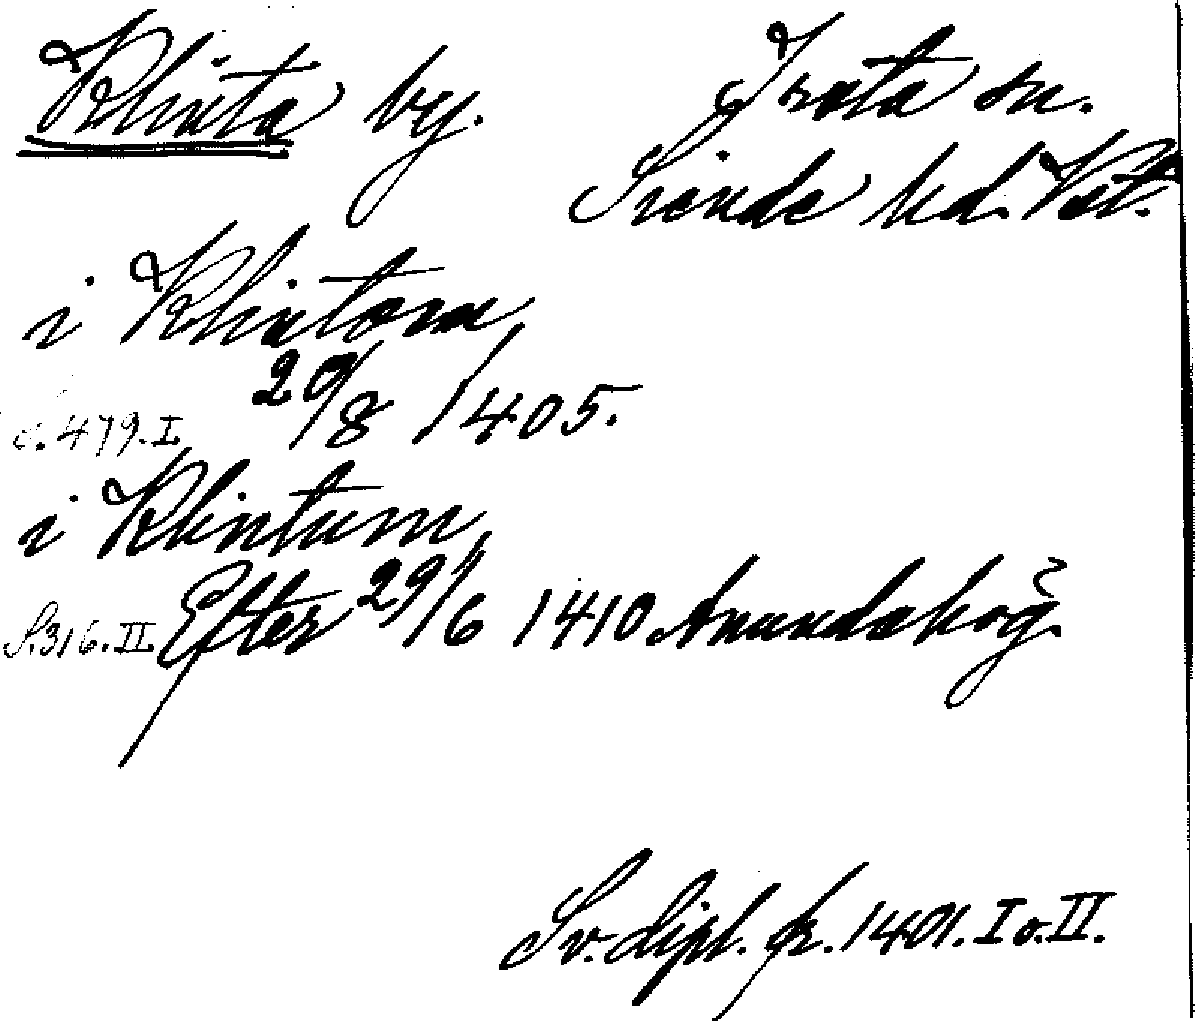 Klinta by.
Irsta sn.
Siende hd. Vstm.
i Klintom,
20/8 1405.
s. 479. I.
i Klintum,
S. 316. II. Efter 29/6 1410 Anundahög.
Sv. dipl. fr. 1401. I o. II.